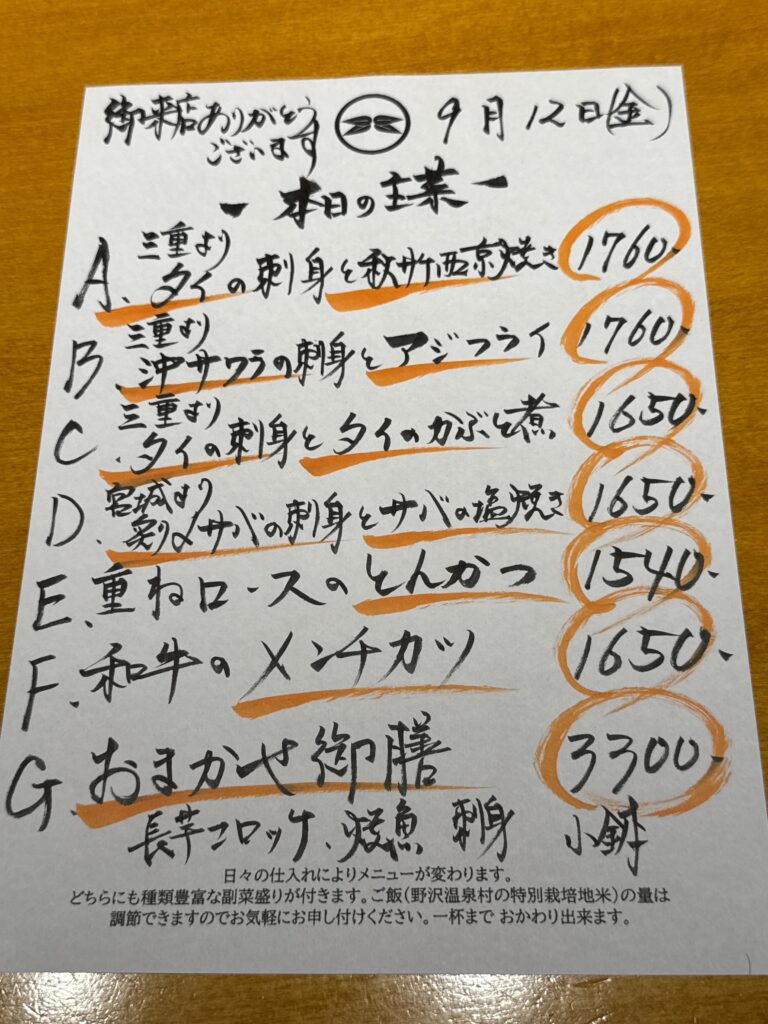 御来店ありがとう
ございます
9月12日(金)
ー 本日の主菜 ー
三重より
A、タイの刺身と秋サケ西京焼き 1760-
三重より
B、沖サワラの刺身とアジフライ 1760-
三重より
C、タイの刺身とタイのかぶと煮 1650-
宮城より
D、炙り〆サバの刺身とサバの塩焼き 1650-
E、重ねロースのとんかつ 1540-
F、和牛のメンチカツ 1650-
G、おまかせ御膳 3300-
長芋コロッケ、焼魚 刺身 小鉢
日々の仕入れによりメニューが変わります。
どちらにも種類豊富な副菜盛りが付きます。ご飯(野沢温泉村の特別栽培地米)の量は
調節できますのでお気軽にお申し付けください。一杯まで おかわり出来ます。